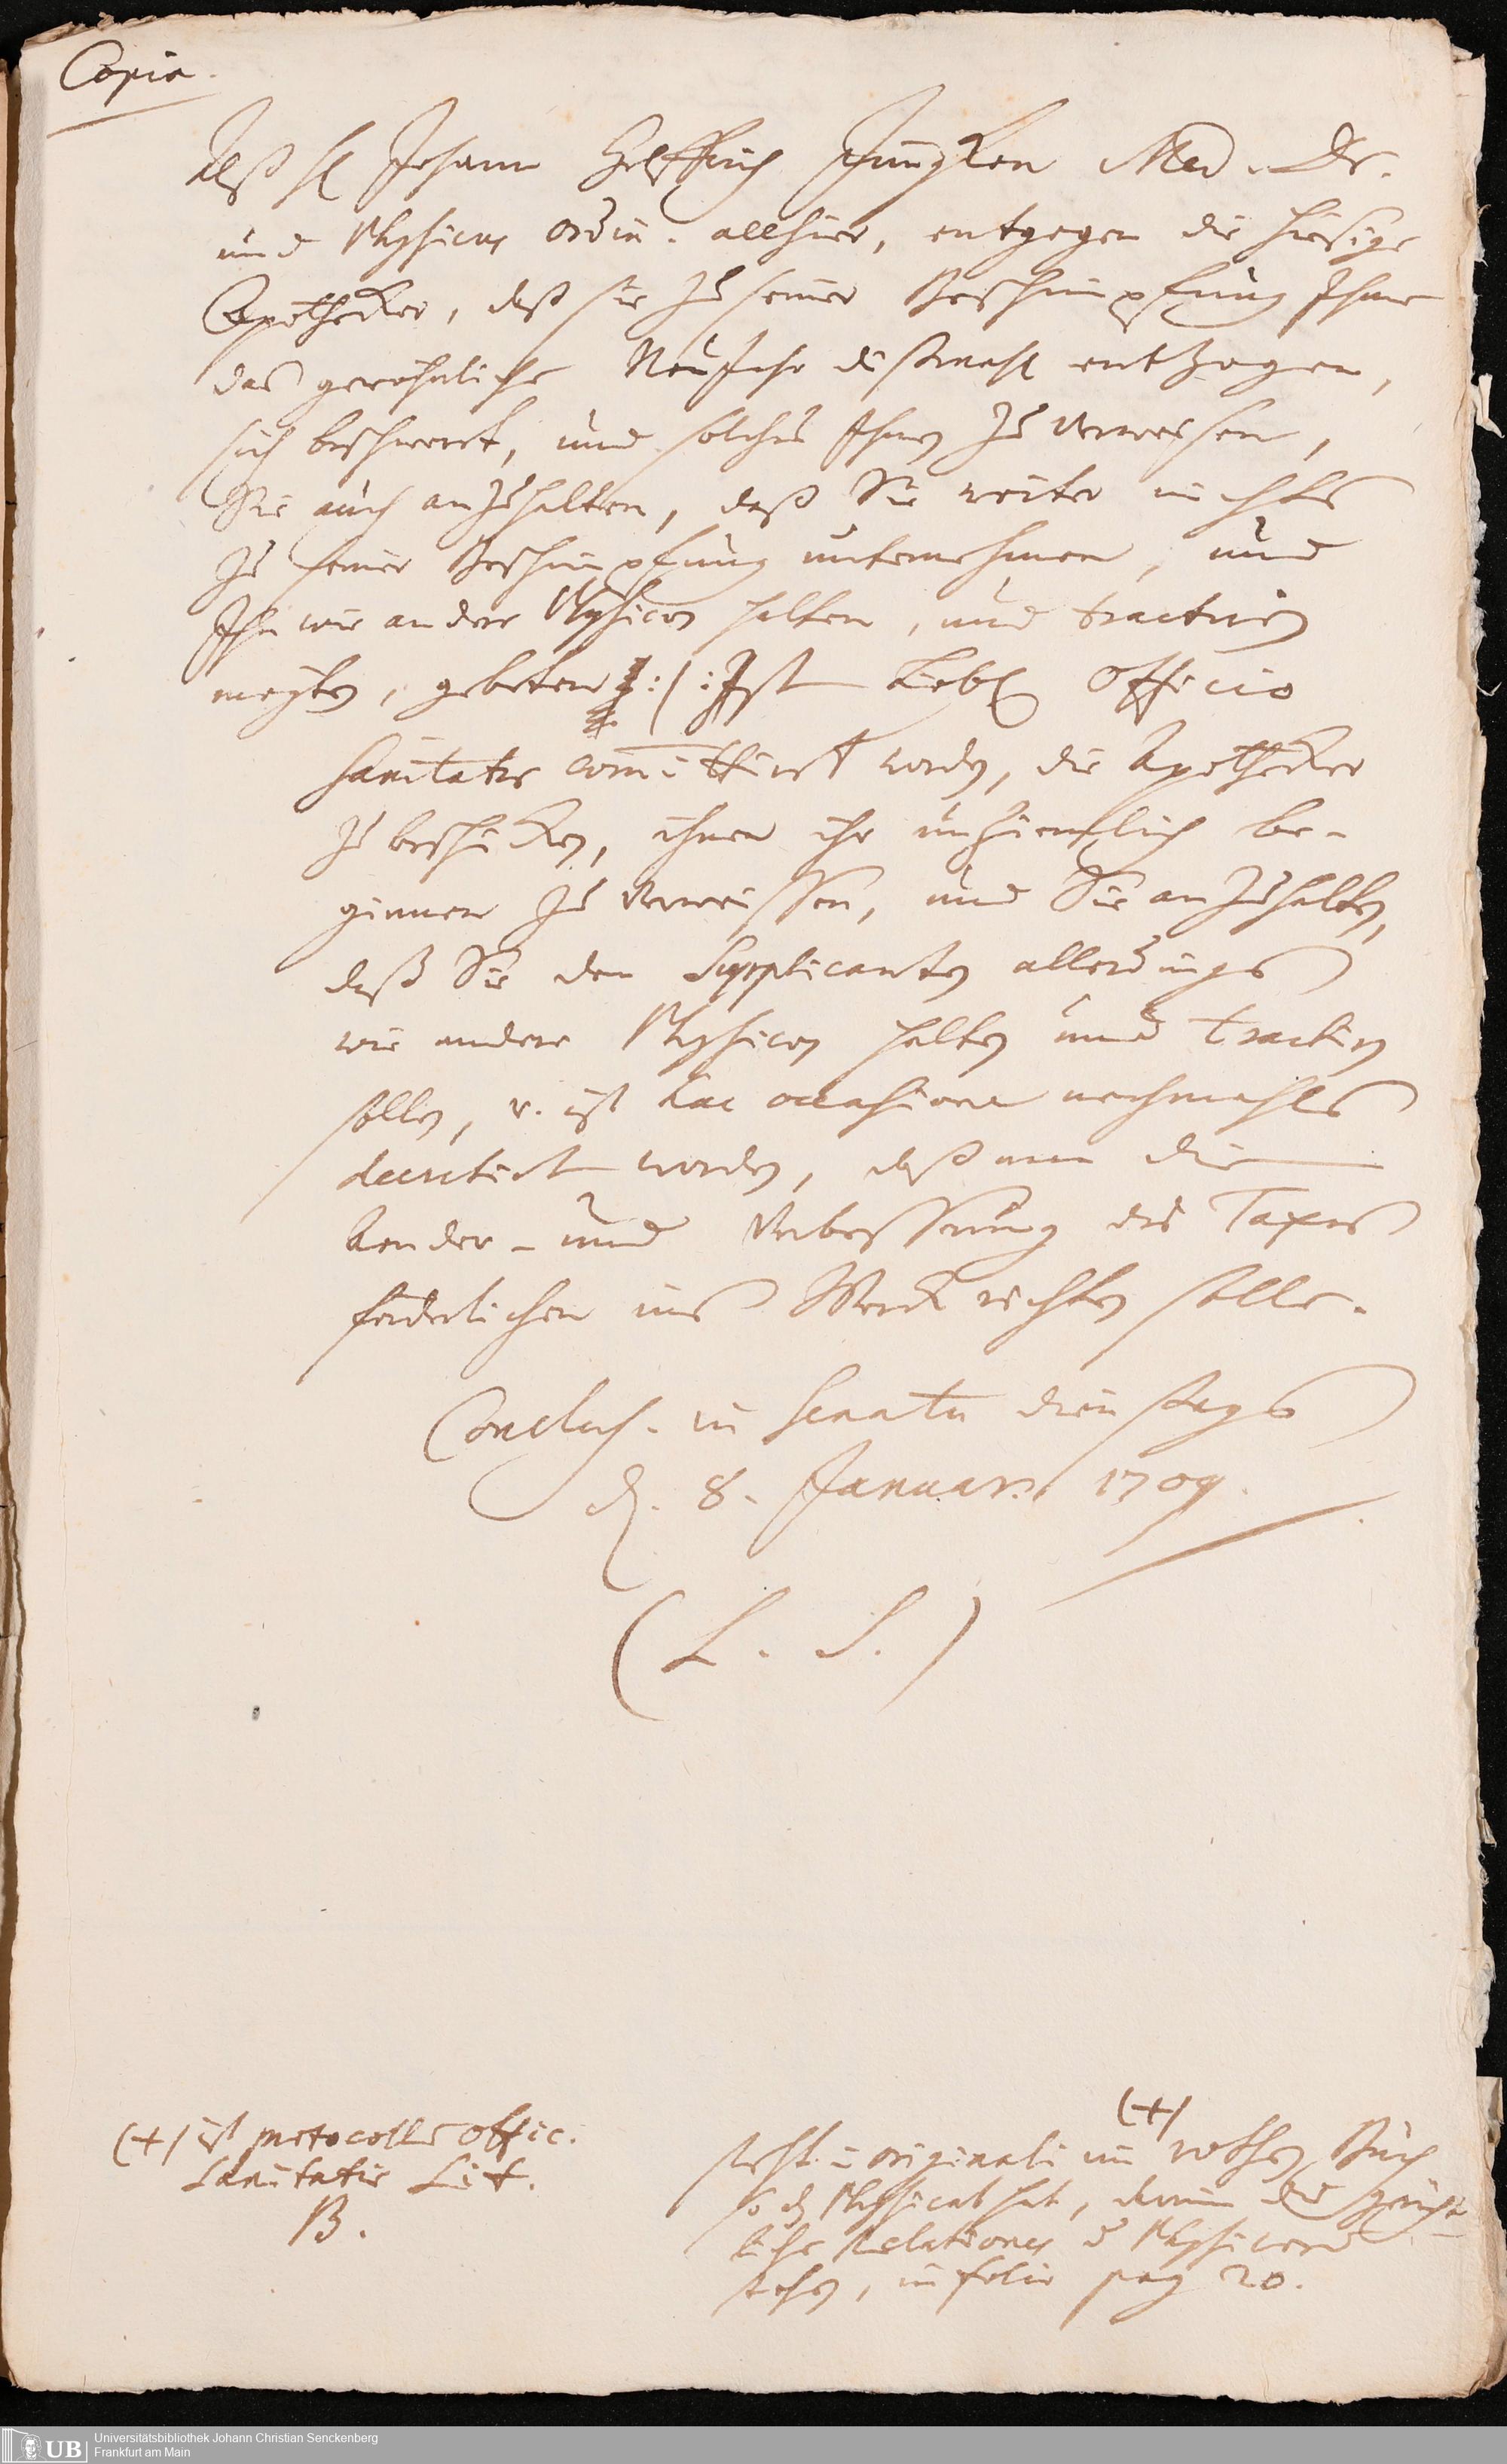 Copia.
Alß H Johann Helffrich Jüngken Med. Dr.
und Physicus ordin. allhier, entgegen die hiesige
Apothecker, daß sie zu seiner Beschimpfung Ihme
das gewöhnliche NeuJahr dißmahl entzogen,
sich beschwert, und solches Ihnen zu verweisen,
Sie auch anzuhalten, daß Sie weiter nichts
zu seiner Beschimpfung unternehmen, und
Ihn wie andere Physicos halten, und tractiren
möchten, gebeten :/: Ist Löbl Officio
Sanitatis committirt worden, die Apothecker
zu beschicken, ihnen ihr unziemlich be-
ginnen zu verweissen, und Sie anzuhalten,
daß Sie den Supplicanten allerdings
wie andere Physicos halten und tractiren
sollen, v. ist hac occasione nochmahls
decretirt worden, daß man die
Aender- und Verbesserung des Taxes
förderlichen ins Werck richten solle.
Conclus. in Senatu dienstags
d. 8. Januarii 1709.
(L. S.)
(+) ist protocollum offic.
Sanitatis Lit.
B.
(+)
steht in originali im rothen Buch
so das Physicat hat, darin die gericht-
liche Relationes der Physicorum
stehen, in folio pag 20.
Universitätsbibliothek Johann Christian Senckenberg
Frankfurt am Main
UB